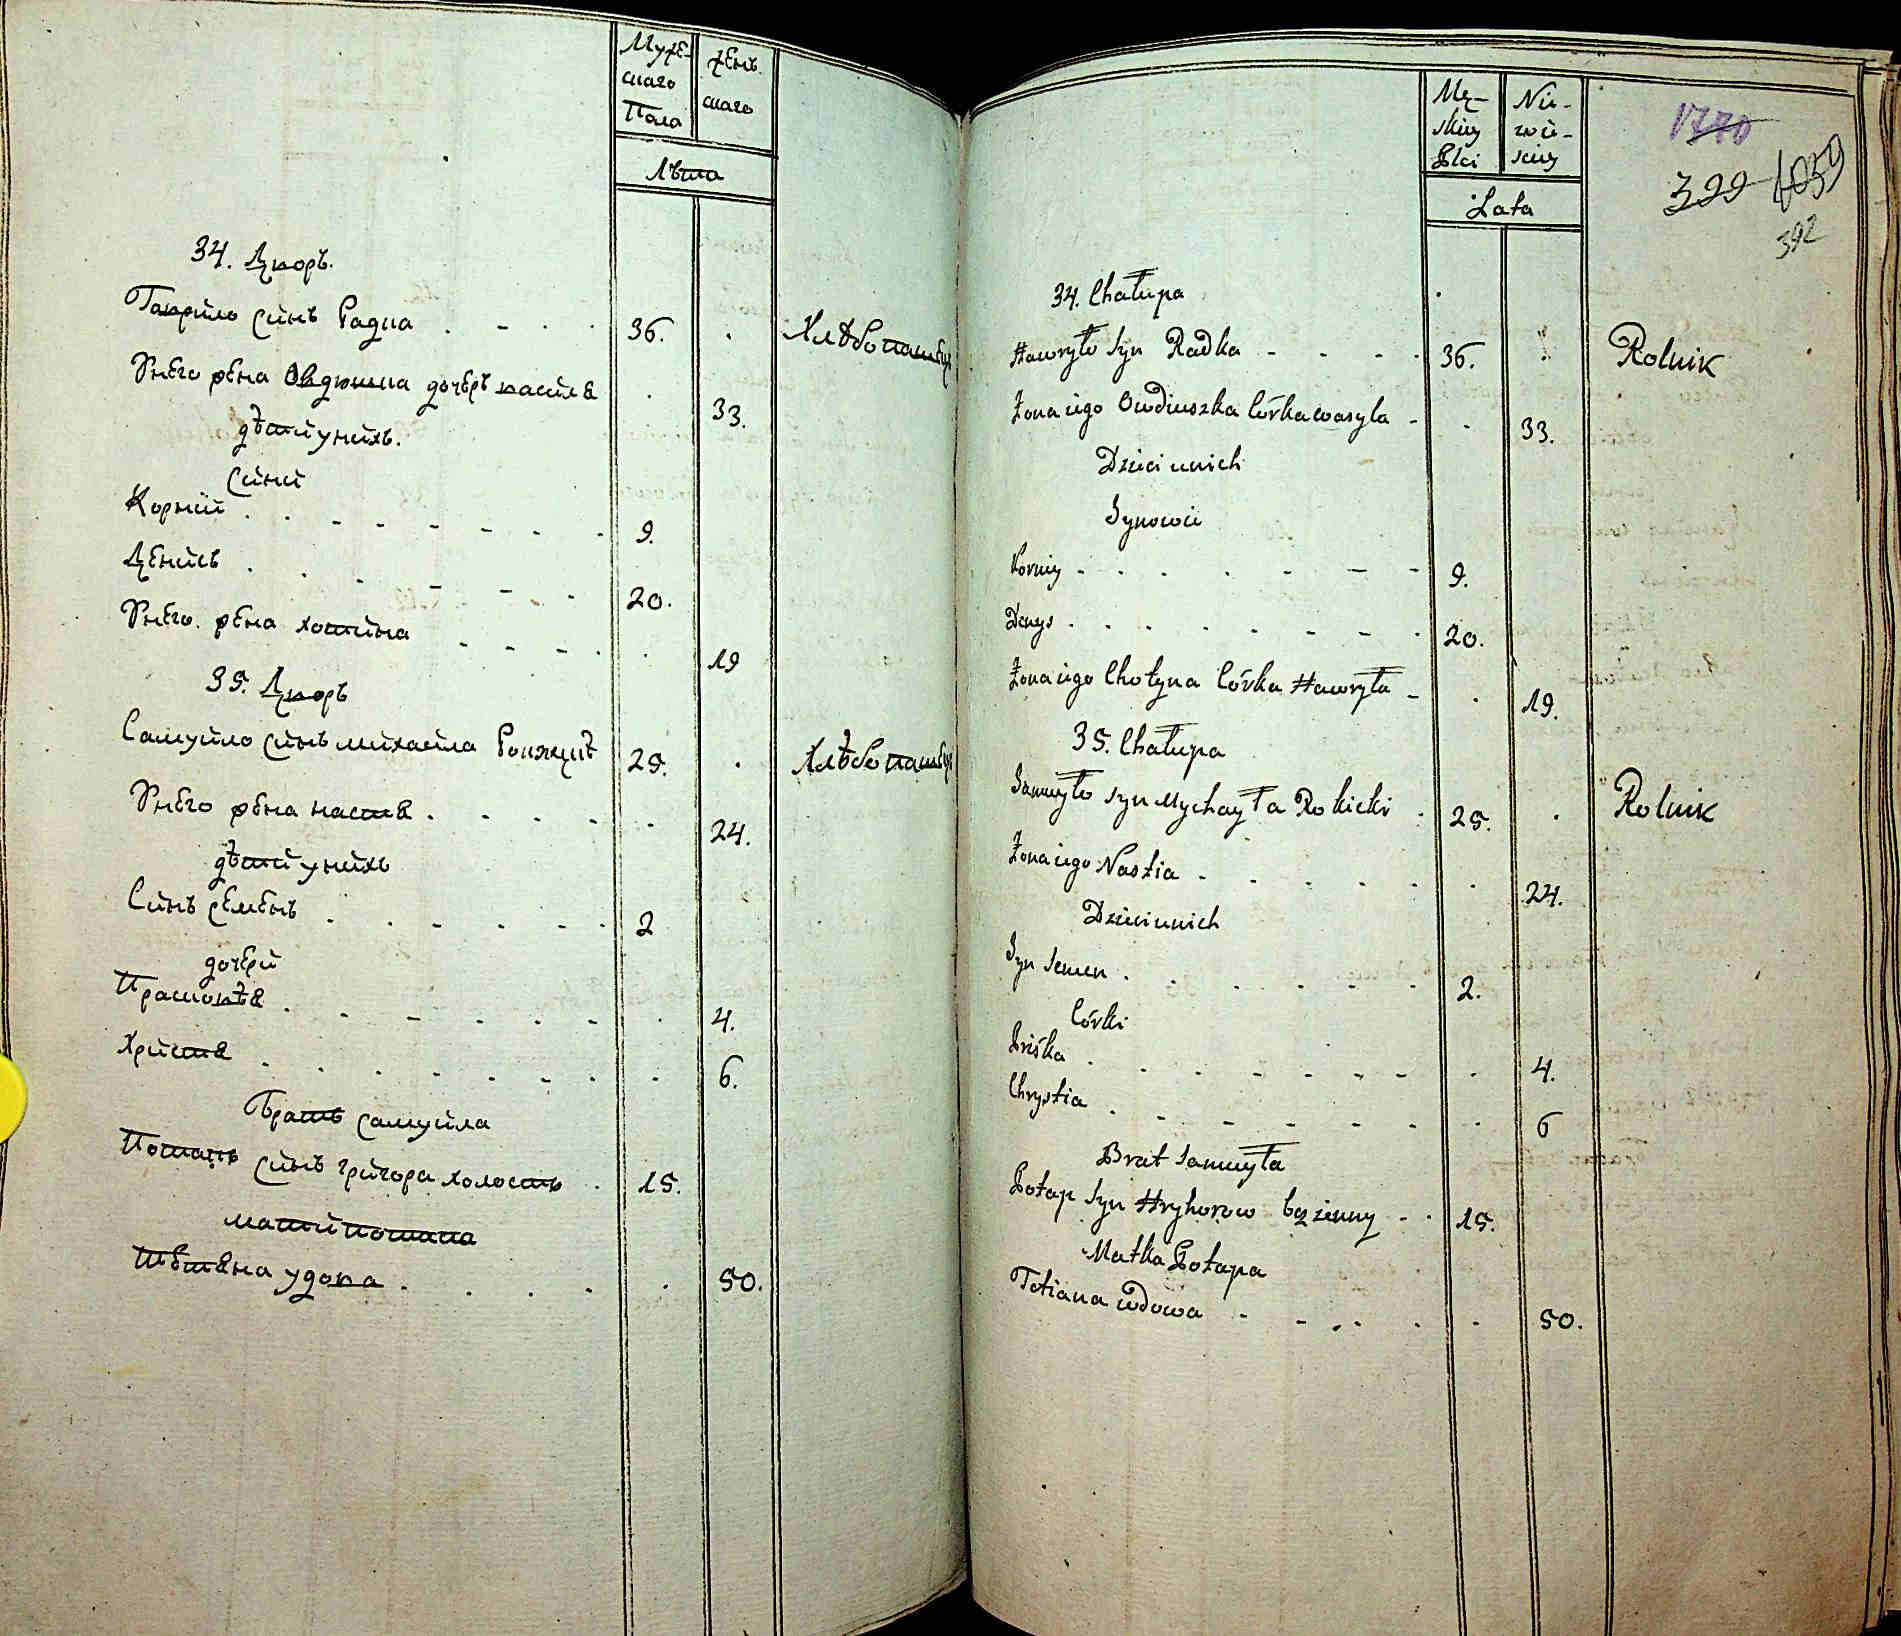 Муже-
скаго
Пола
жень-
скаго
Лѣта
34. Двор.
Гаврило синъ Радка . - . . 36. . Хлѣбопашец
Унего жена Овдюшка дочеръ василя . 33.
дѣтий унихъ.
Сини
Корний . . - - - - . 9.
Денисъ . . . - - - . 20.
Унего жена хотина - - - . . 19
35. Дворъ
Самуйло синъ михайла 25. . Хлѣбопашец
Унего жена настя . . . . . . 24.
дѣтий унихъ
Синъ семенъ . . . . . . 2
дочери
Прасковѣя . . . - - - - . 4.
Христя . . . . . - . . . 6.
Братъ самуйла
Потапъ синъ григора холостъ . 15.
мати потапа
Тетяна удова . . . . . 50.
Mę-
skiey
Płci
Nie-
wie-
sciey
Lata
1770
399 1059
392
34. Chałupa
Hawryło Syn Radka - - - . 36. Rolnik
Żona iego Owdiuszka Córka wasyla - . 33.
Dzieci unich
Synowie
Korniy - . . . - - - 9.
Denys . . . . . - - . 20.
Żona iego Chotyna Córka Hawryła - . 19.
35. Chałupa
Samuyło Syn Mychayła Rokicki . 25. . Rolnik
Żona iego Nastia . . . . . . 24.
Dzieci unich
Syn Semen . . . . . - . 2.
Córki
Priśka . . . . - - - . 4.
Chrystia . - - . . . . . 6
Brat Samuyła
Potap Syn Hryhorow bezżenny - . 15.
Matka Potapa
Tetiana wdowa - - . . . . 50.